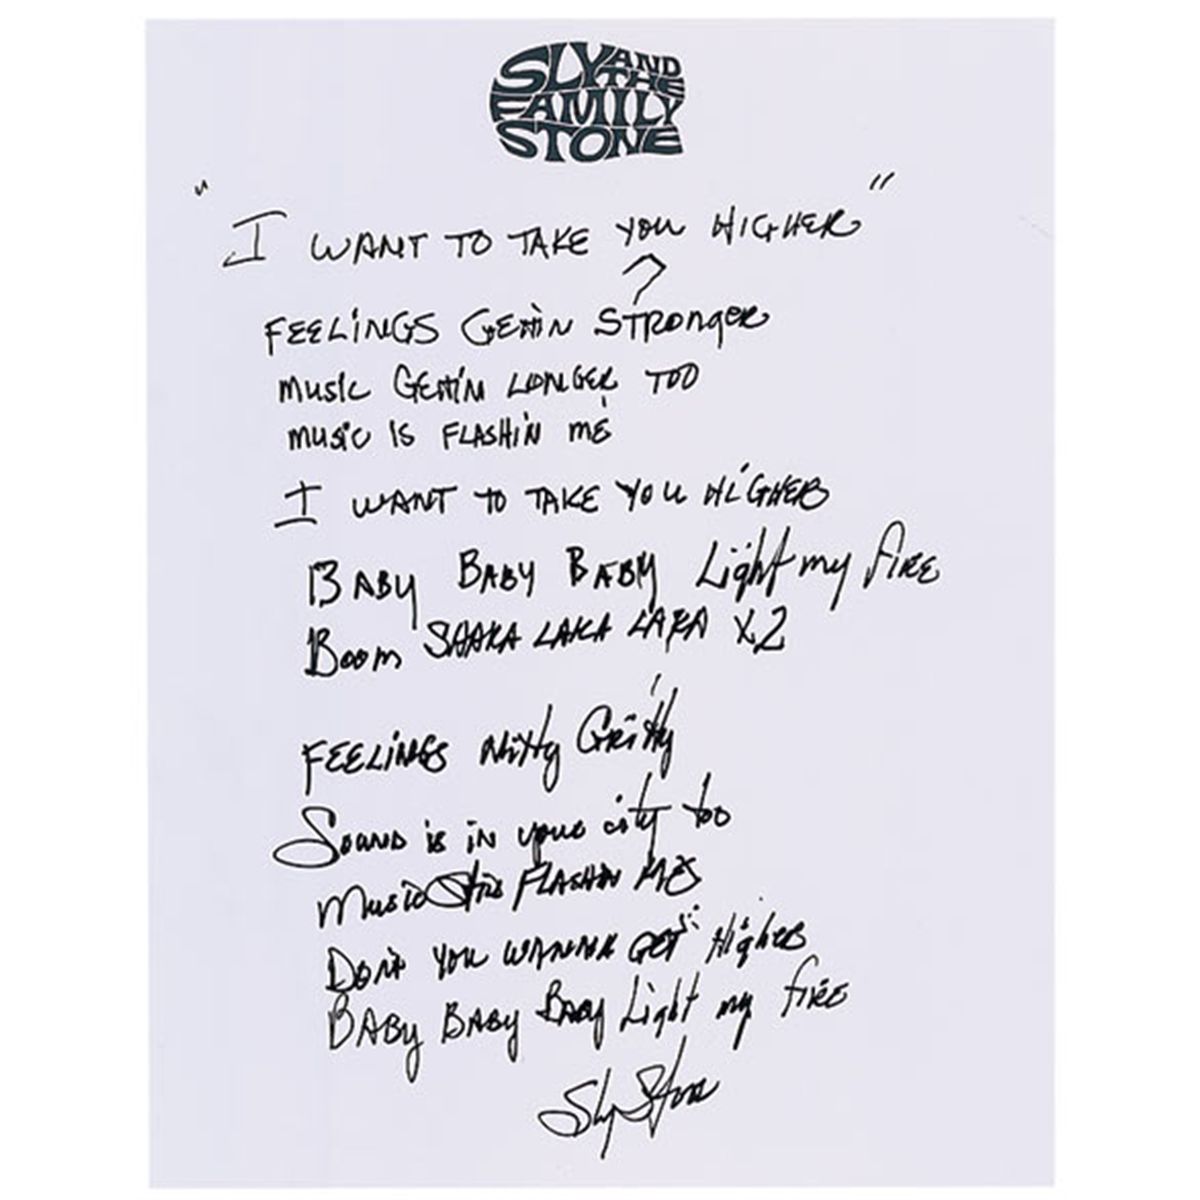 SLY AND
THE
FAMILY
STONE
"I WANT TO TAKE YOU HIGHER"
FEELINGS GETTIN STRONGER
MUSIC GETTIN LONGER TOO
MUSIC IS FLASHIN ME
I WANT TO TAKE YOU HIGHER
BABY BABY BABY Light my FIRE
BOOM SHAKA LAKA LAKA X2
FEELINGS Nitty Gritty
SOUND is in your city too
MUSIC Still FLASHIN ME
DON'T YOU WANNA GET HigheR
BABY BABY BABY Light my FIRE
Sly Stone